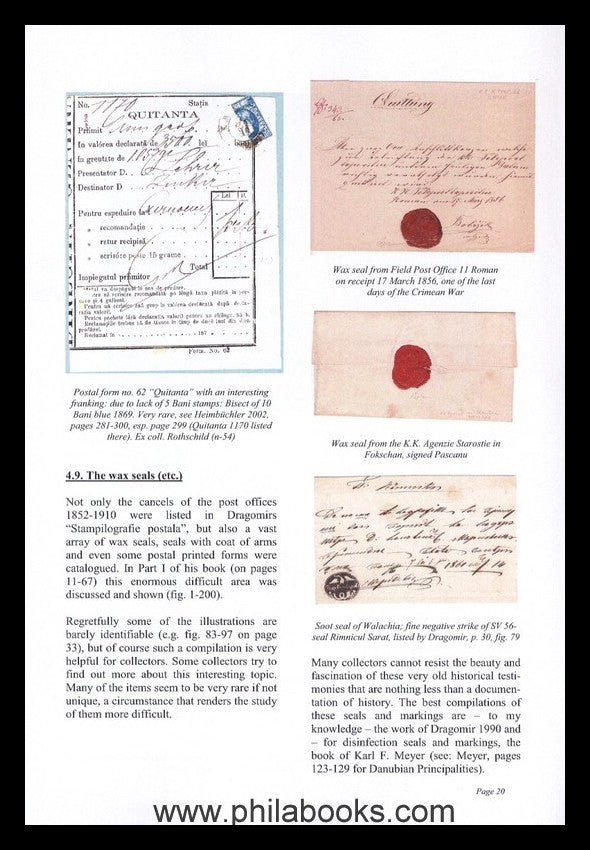 No. 1170 Stația
QUITANTA
Primit
In valórea declarată de 3500 lei bani
in greutate de
Presentator D.
Destinator D
Lei B.
Pentru espeduire la
" recomandație
" retur recipisă
" scrisóre peste 15 grame
Total
Impiegatul primitor
Form. No. 62
Postal form no. 62 "Quitanta" with an interesting
franking: due to lack of 5 Bani stamps: Bisect of 10
Bani blue 1869. Very rare, see Heimbüchler 2002,
pages 281-300, esp. page 299 (Quitanta 1170 listed
there). Ex coll. Rothschild (n-54)
4.9. The wax seals (etc.)
Not only the cancels of the post offices
1852-1910 were listed in Dragomirs
"Stampilografie postala", but also a vast
array of wax seals, seals with coat of arms
and even some postal printed forms were
catalogued. In Part I of his book (on pages
11-67) this enormous difficult area was
discussed and shown (fig. 1-200).
Regretfully some of the illustrations are
barely identifiable (e.g. fig. 83-97 on page
33), but of course such a compilation is very
helpful for collectors. Some collectors try to
find out more about this interesting topic.
Many of the items seem to be very rare if not
unique, a circumstance that renders the study
of them more difficult.
Quittung
Wax seal from Field Post Office 11 Roman
on receipt 17 March 1856, one of the last
days of the Crimean War
Wax seal from the K.K. Agenzie Starostie in
Fokschan, signed Pascanu
Soot seal of Walachia; fine negative strike of SV 56-
seal Rimnicul Sarat, listed by Dragomir, p. 30, fig. 79
Many collectors cannot resist the beauty and
fascination of these very old historical testi-
monies that are nothing less than a documen-
tation of history. The best compilations of
these seals and markings are – to my
knowledge – the work of Dragomir 1990 and
– for disinfection seals and markings, the
book of Karl F. Meyer (see: Meyer, pages
123-129 for Danubian Principalities).
Page 20
www.philabooks.com